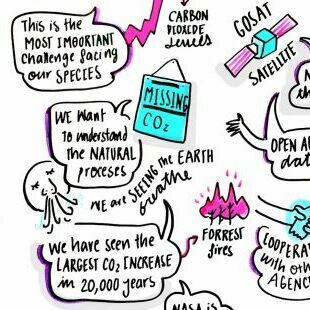 This is the
MOST IMPORTANT
challenge facing
our SPECIES
CARBON
DIOXIDE
levels
GOSAT
SATELLITE
MISSING
CO2
WE Want
to understand
the NATURAL
proceses
WE are SEEING the EARTH
breathe
OPEN A
dat
We have seen the
LARGEST CO2 INCREASE
in 20,000 years
FORREST
fires
COOPERA
with oth
AGENC
NASA is